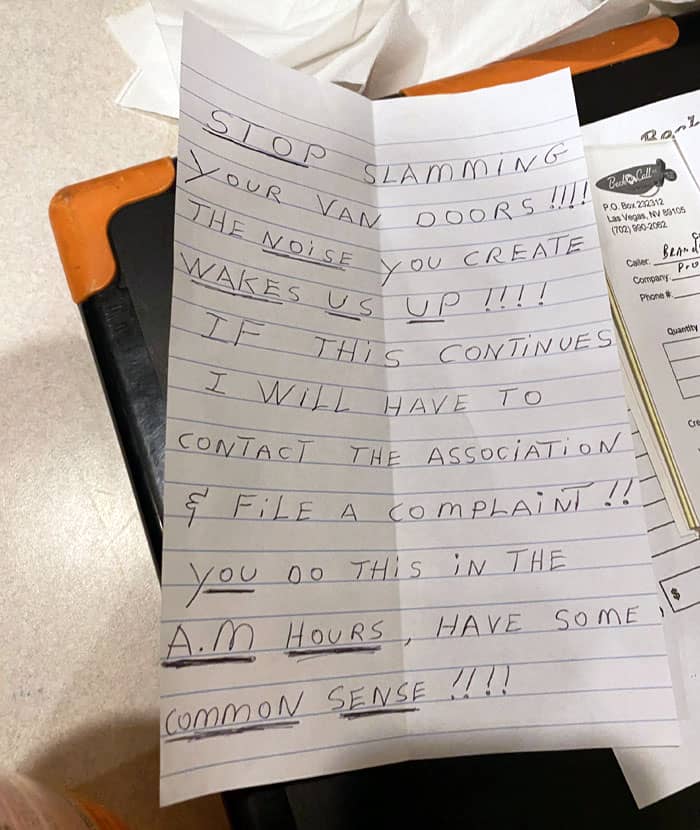 STOP SLAMMING
YOUR VAN DOORS !!!!
THE NOISE YOU CREATE
WAKES US UP !!!!
IF THIS CONTINUES
I WILL HAVE TO
CONTACT THE ASSOCIATION
& FILE A COMPLAINT !!
YOU DO THIS IN THE
A.M HOURS, HAVE SOME
COMMON SENSE !!!!
P.O. Box 232312
Las Vegas, NV 89105
(702) 990-2062
Caller:
Company:
Phone #:
Quantity
$